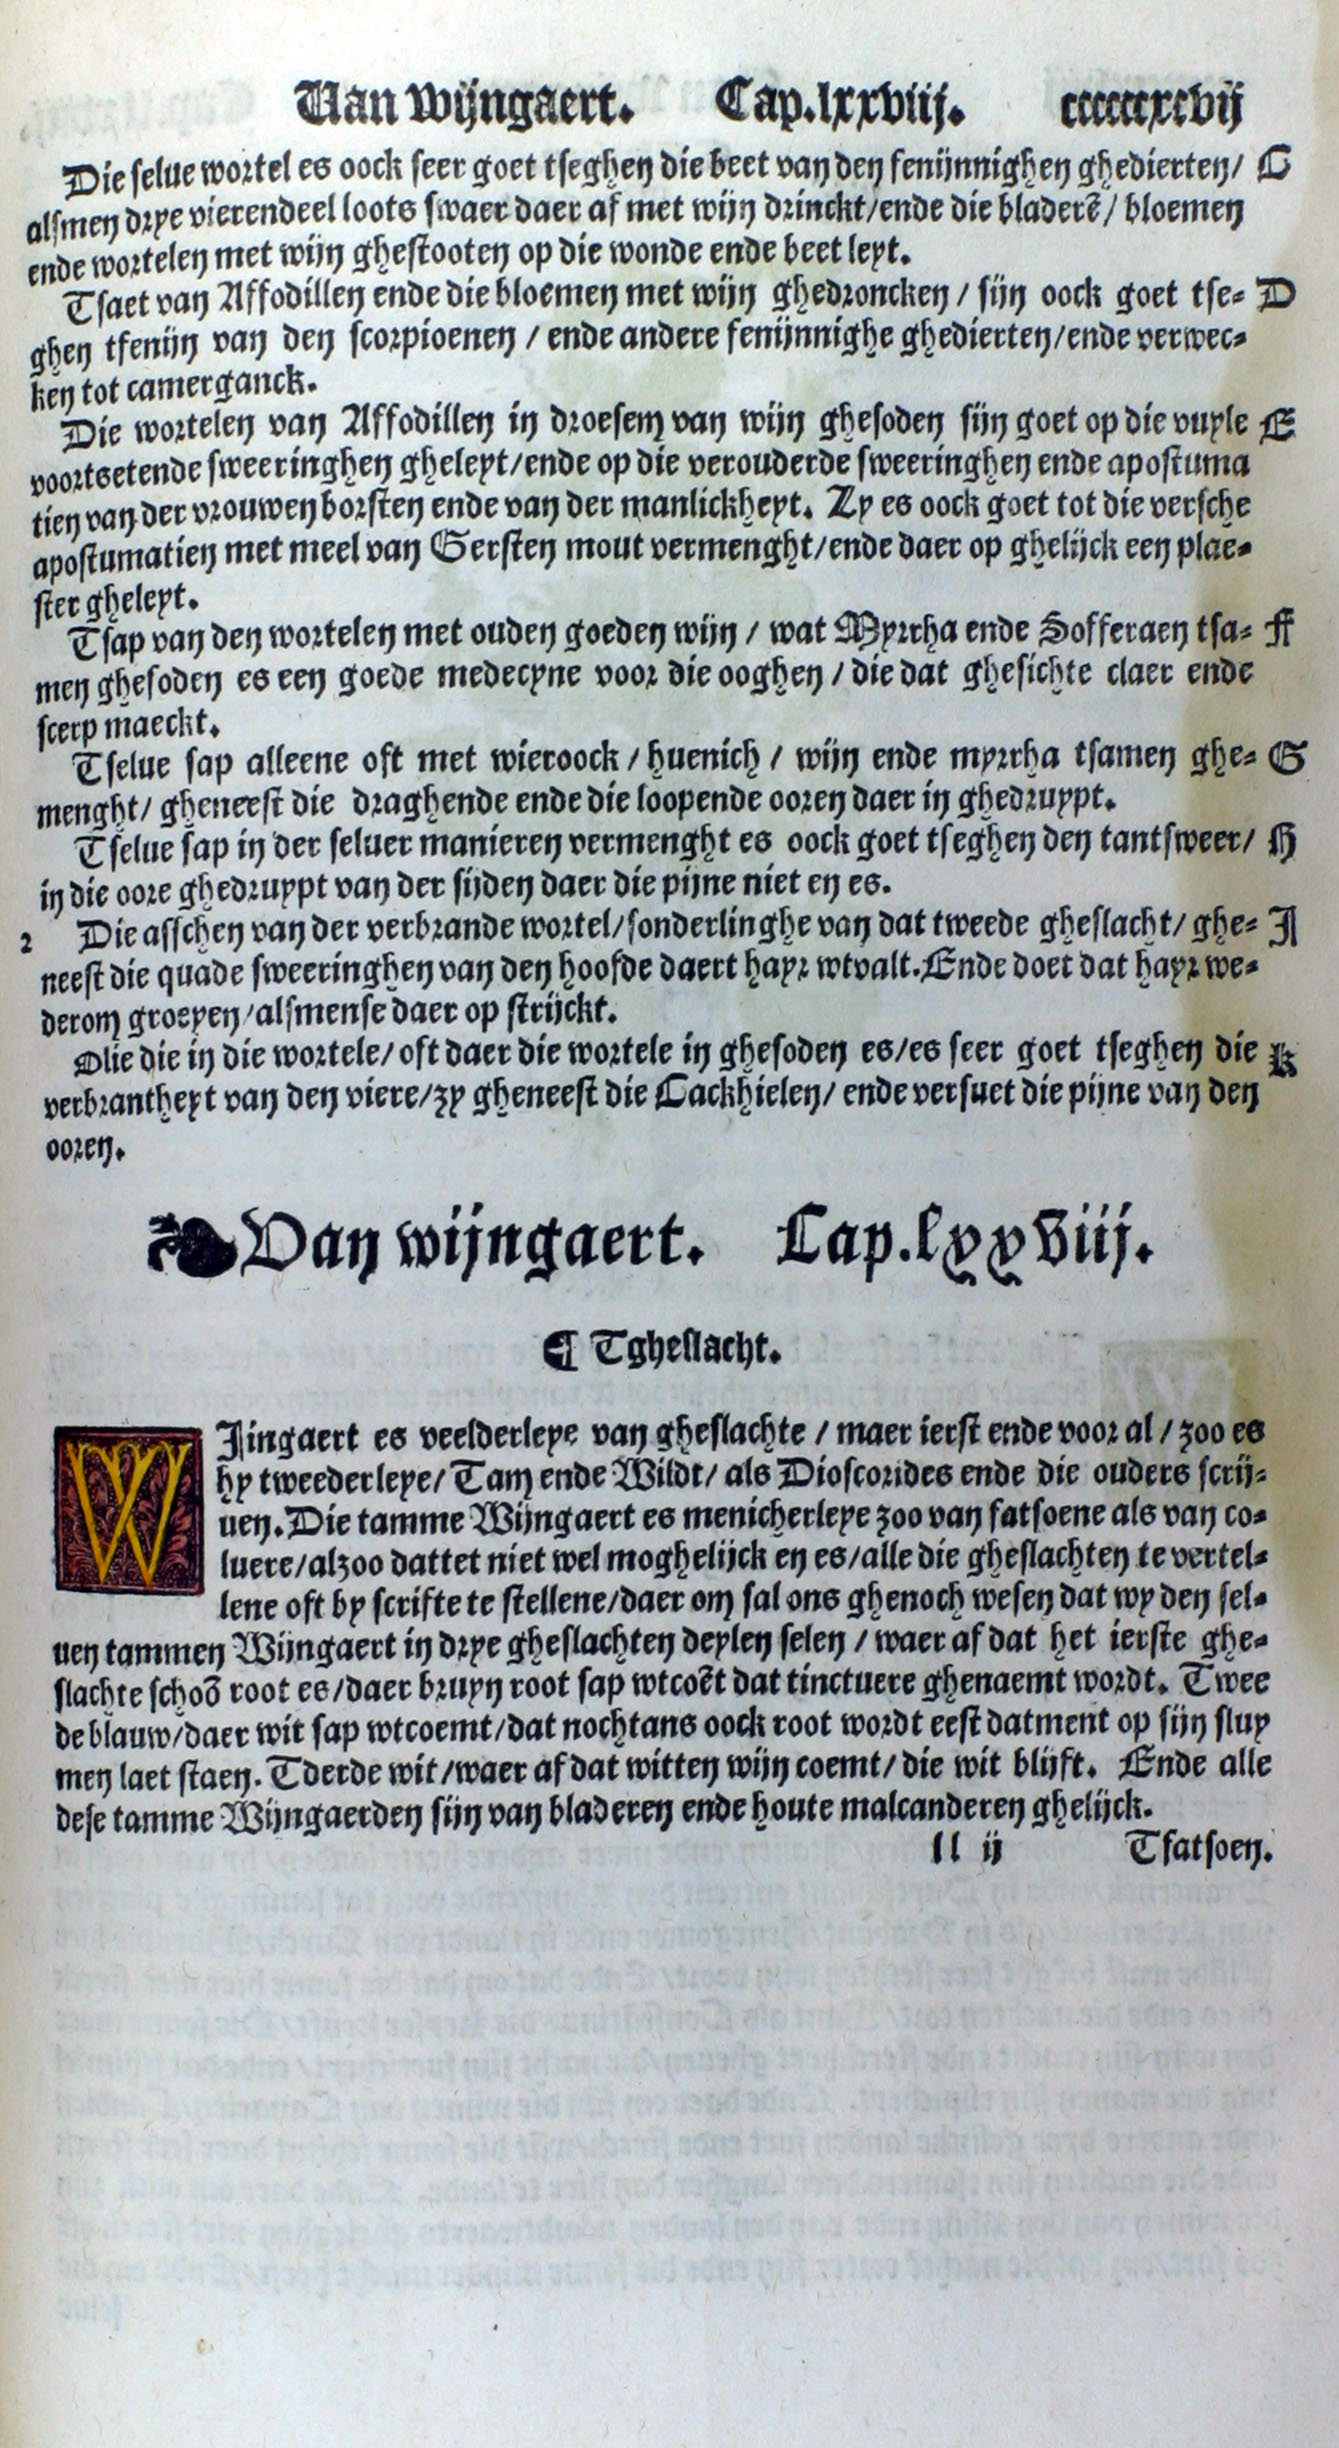 Van Wijngaert. Cap.lxxviij. ccccccxcvij
Die selue wortel es oock seer goet tseghen die beet van den fenijnnighen ghedierten/ C
alsmen drye vierendeel loots swaer daer af met wijn drinckt/ende die bladerē/ bloemen
ende wortelen met wijn ghestooten op die wonde ende beet leyt.
Tsaet van Affodillen ende die bloemen met wijn ghedroncken / sijn oock goet tse- D
ghen tfenijn van den scorpioenen / ende andere fenijnnighe ghedierten/ende verwec-
ken tot camerganck.
Die wortelen van Affodillen in droesem van wijn ghesoden sijn goet op die vuyle E
voortsetende sweeringhen gheleyt/ende op die verouderde sweeringhen ende apostuma
tien van der vrouwen borsten ende van der manlickheyt. Zy es oock goet tot die versche
apostumatien met meel van Gersten mout vermenght/ende daer op ghelijck een plae-
ster gheleyt.
Tsap van den wortelen met ouden goeden wijn / wat Myrrha ende Sofferaen tsa- F
men ghesoden es een goede medecyne voor die ooghen / die dat ghesichte claer ende
scerp maeckt.
Tselue sap alleene oft met wieroock / huenich / wijn ende myrrha tsamen ghe- G
menght/ gheneest die draghende ende die loopende ooren daer in ghedruypt.
Tselue sap in der seluer manieren vermenght es oock goet tseghen den tantsweer/ H
in die oore ghedruypt van der sijden daer die pijne niet en es.
2 Die asschen van der verbrande wortel/sonderlinghe van dat tweede gheslacht/ ghe- I
neest die quade sweeringhen van den hoofde daert hayr wtvalt. Ende doet dat hayr we-
derom groeyen/alsmense daer op strijckt.
Olie die in die wortele/ oft daer die wortele in ghesoden es/es seer goet tseghen die K
verbrantheyt van den viere/zy gheneest die Cackhielen/ ende versuet die pijne van den
ooren.
Van wijngaert. Cap.lxxviij.
¶ Tgheslacht.
WIingaert es veelderleye van gheslachte / maer ierst ende voor al / zoo es
hy tweederleye/ Tam ende Wildt/ als Dioscorides ende die ouders scrij-
uen. Die tamme Wijngaert es menicherleye zoo van fatsoene als van co-
luere/alzoo dattet niet wel moghelijck en es/alle die gheslachten te vertel-
lene oft by scrifte te stellene/daer om sal ons ghenoch wesen dat wy den sel-
uen tammen Wijngaert in drye gheslachten deylen selen / waer af dat het ierste ghe-
slachte schoō root es/daer bruyn root sap wtcoēt dat tinctuere ghenaemt wordt. Twee
de blauw/daer wit sap wtcoemt/dat nochtans oock root wordt eest datment op sijn sluy
men laet staen. Tderde wit/waer af dat witten wijn coemt/ die wit blijft. Ende alle
dese tamme Wijngaerden sijn van bladeren ende houte malcanderen ghelijck.
ll ij Tfatsoen.